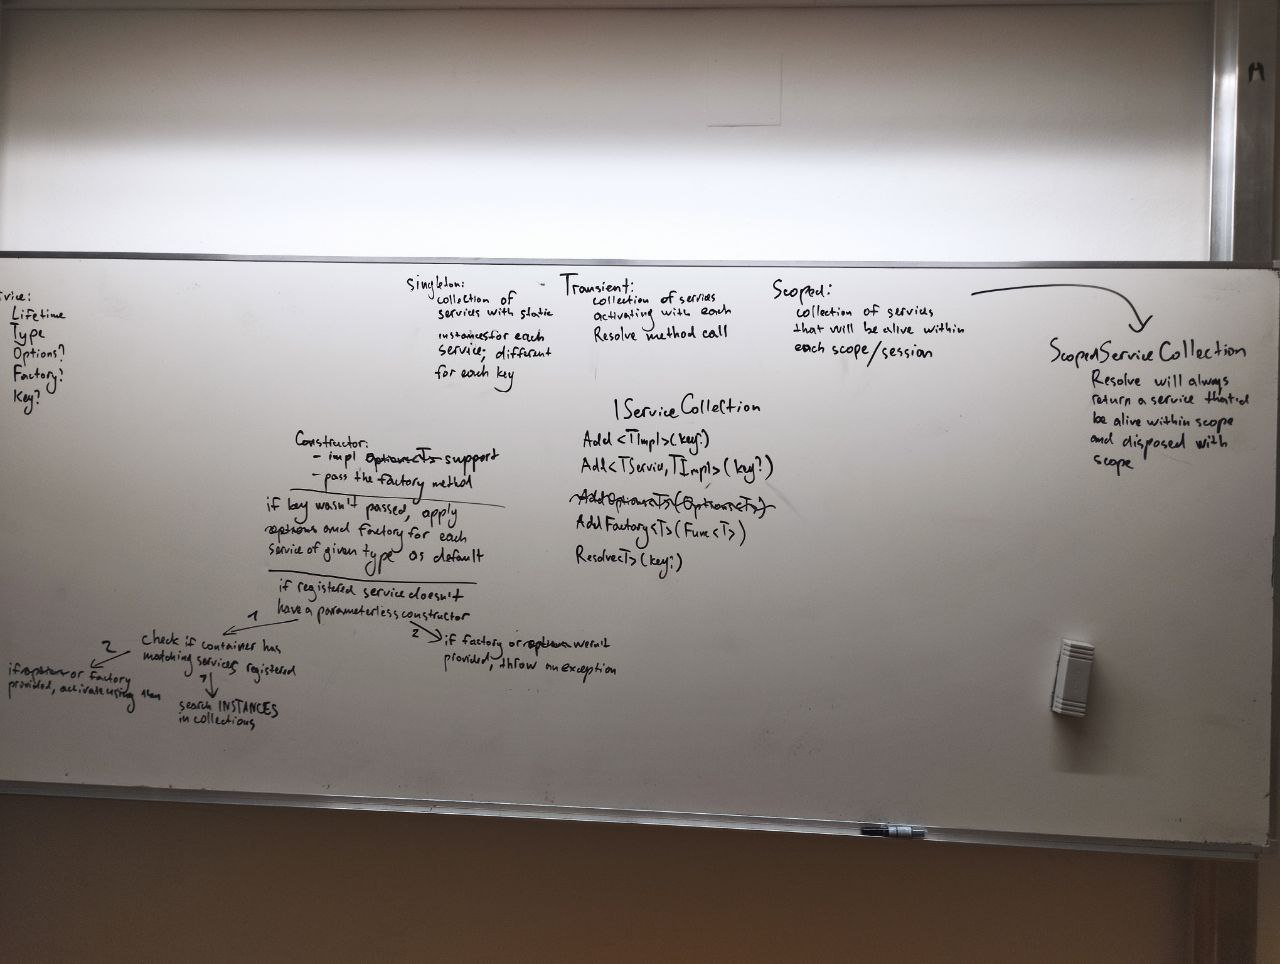 rvice:
Lifetime
Type
Options?
Factory?
Key?
Singleton:
collection of
services with static
instances for each
service; different
for each key
Transient:
collection of servies
activating with each
Resolve method call
Scoped:
collection of servies
that will be alive within
each scope/session
ScopedServiceCollection
Resolve will always
return a service that'd
be alive within scope
and disposed with
scope
IServiceCollection
Add<TImpl>(key?)
Add<TService, TImpl>(key?)
AddOptions<T>(Options<T>)
AddFactory<T>(Func<T>)
Resolve<T>(key?)
Constructor:
- impl Options<T> support
- pass the factory method
if key wasn't passed, apply
options and factory for each
service of given type as default
if registered service doesn't
have a parameterless constructor
1
check if container has
matching services registered
2
if option or factory
provided, activate using them
1
search INSTANCES
in collections
2
if factory or options weren't
provided, throw an exception